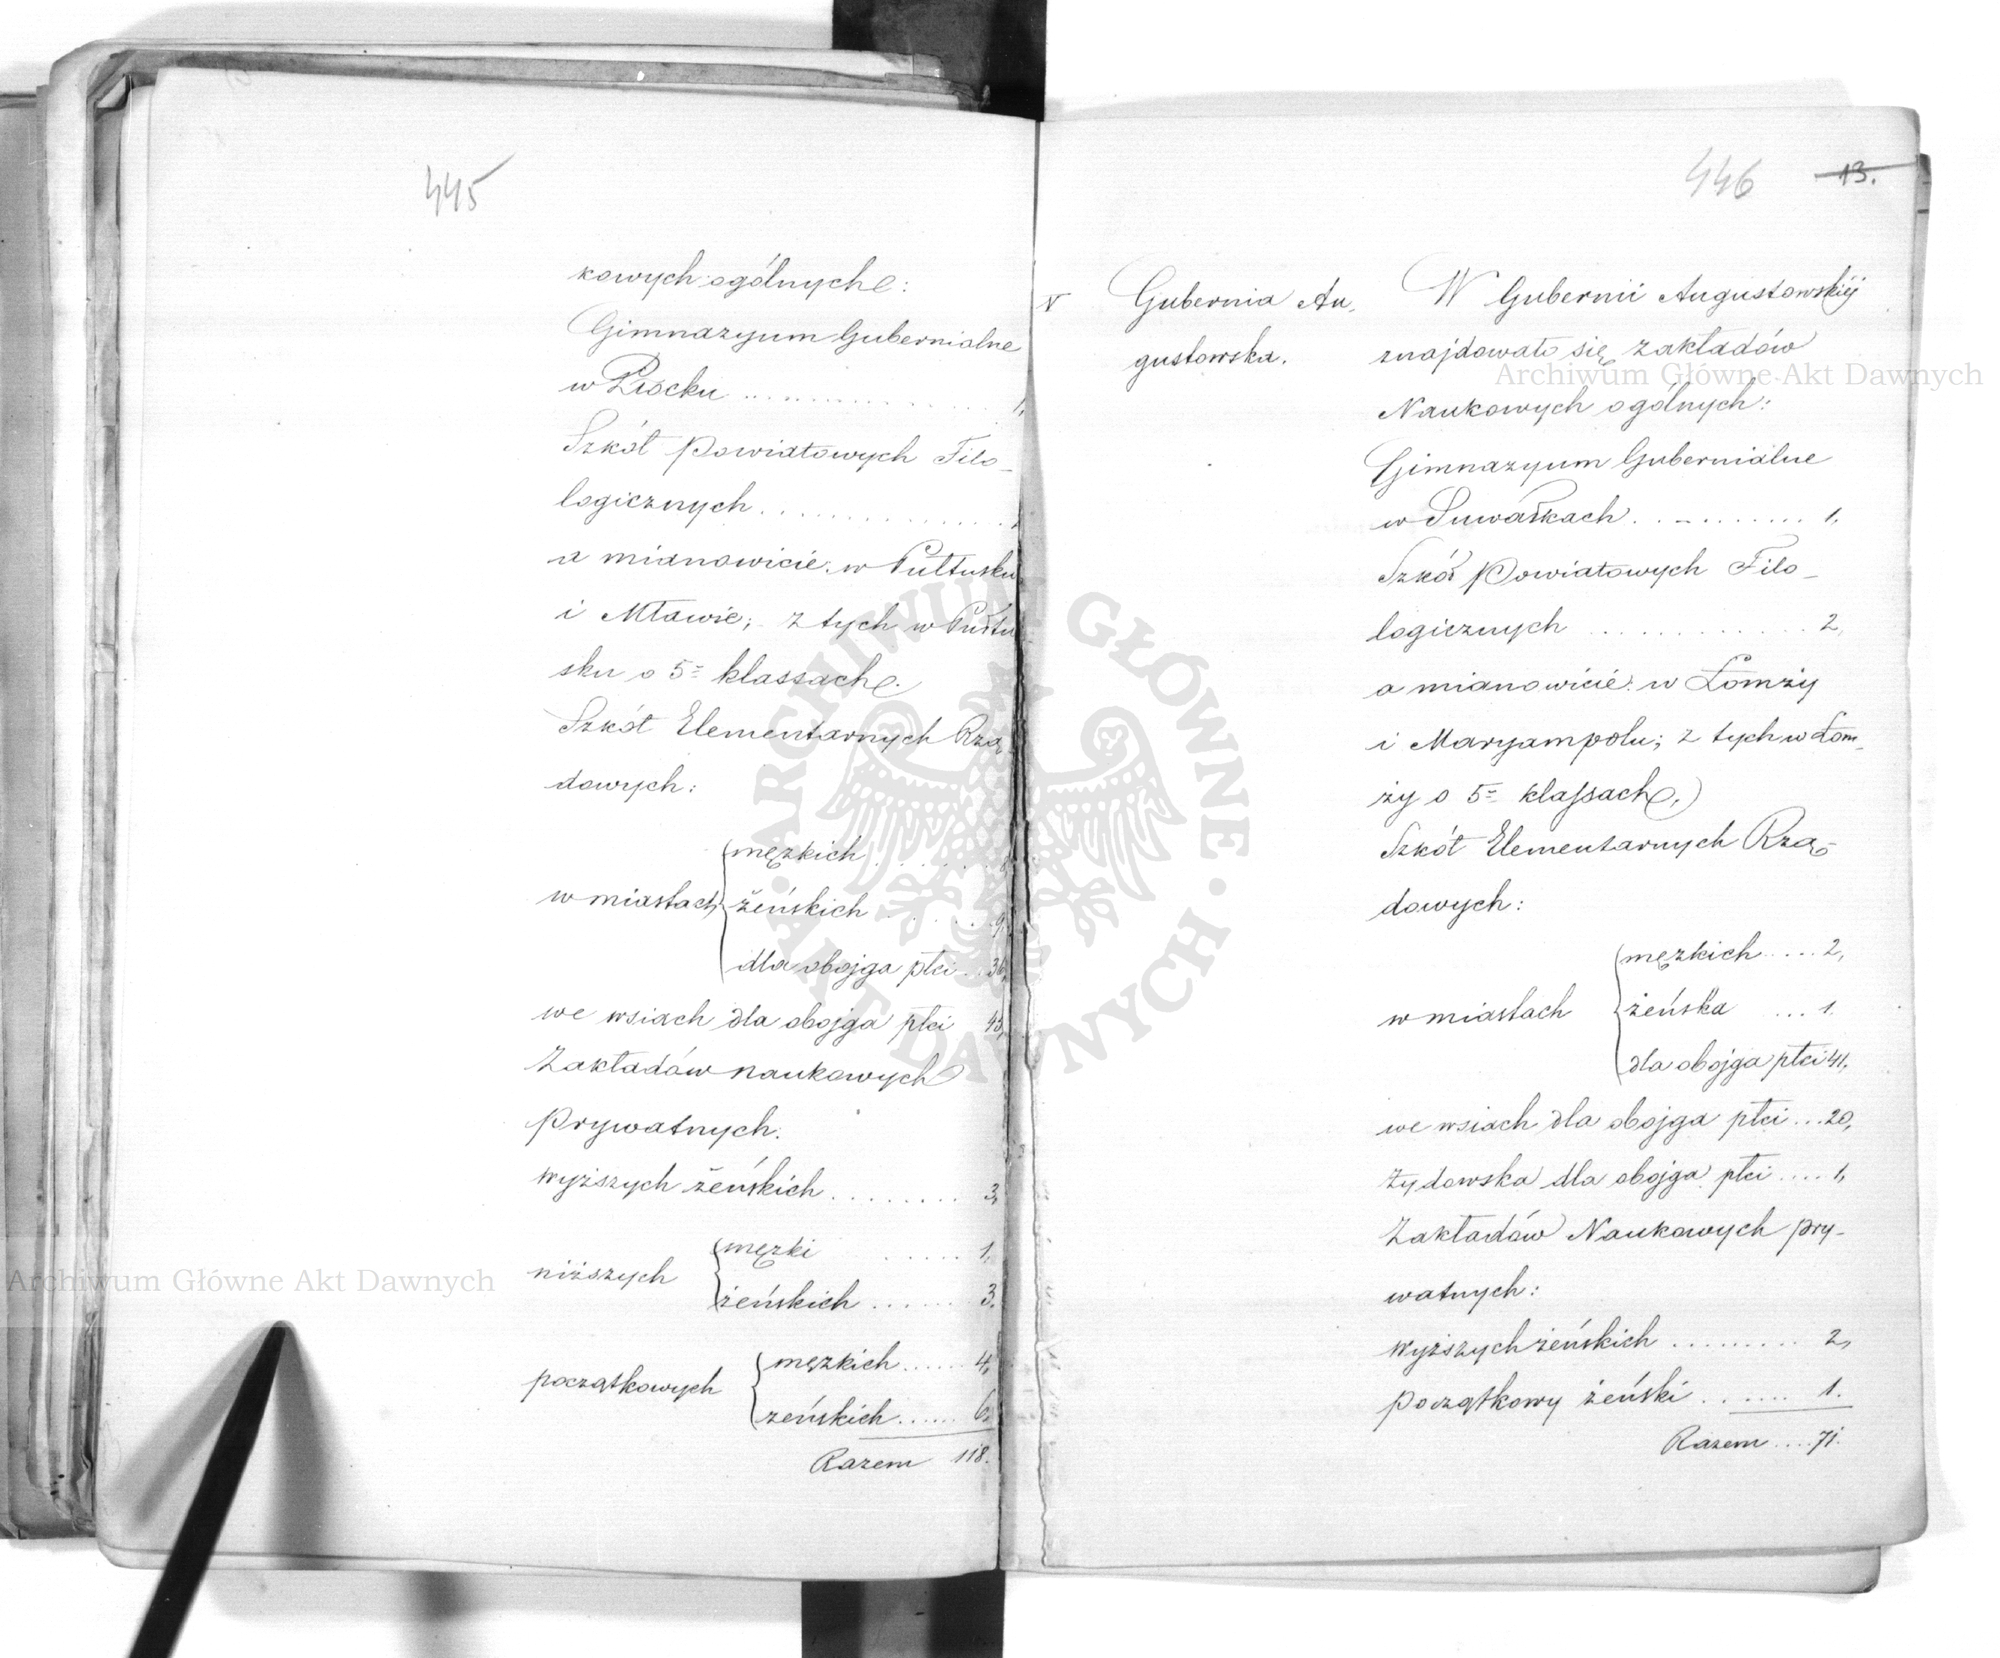 445
kowych ogólnych:
Gimnazyum Gubernialne
w Płocku .................. 1,
Szkół Powiatowych Filo-
logicznych ..................
a mianowicie: w Pułtusku
i Mławie; z tych w Pułtu
sku o 5= klassach.
Szkół Elementarnych Rzą
dowych:
męzkich ........ 8
w miastach żeńskich ....... 9,
dla obojga płci ... 36,
we wsiach dla obojga płci 43,
Zakładów naukowych
Prywatnych.
wyższych żeńskich ......... 3,
męzki ..... 1.
niższych
żeńskich ....... 3.
męzkich ...... 4,
początkowych
żeńskich ...... 6,
Razem 118.
446 13.
V Gubernia Au-
gustowska.
W Gubernii Augustowskiéj
znajdowało się zakładów
Naukowych ogólnych:
Gimnazyum Gubernialne
w Suwałkach ........... 1,
Szkół Powiatowych Filo-
logicznych ............. 2,
a mianowicie: w Łomży
i Maryampolu; z tych w Łom-
ży o 5= klassach.)
Szkół Elementarnych Rzą-
dowych:
męzkich ..... 2,
w miastach żeńska ... 1.
dla obojga płci 41,
we wsiach dla obojga płci ... 20,
żydowska dla obojga płci .... 1,
Zakładów Naukowych pry-
watnych:
wyższych żeńskich ......... 2,
Początkowy żeński ....... 1.
Razem .... 71.
Archiwum Główne Akt Dawnych
Archiwum Główne Akt Dawnych
ARCHIWUM GŁÓWNE · AKT DAWNYCH ·